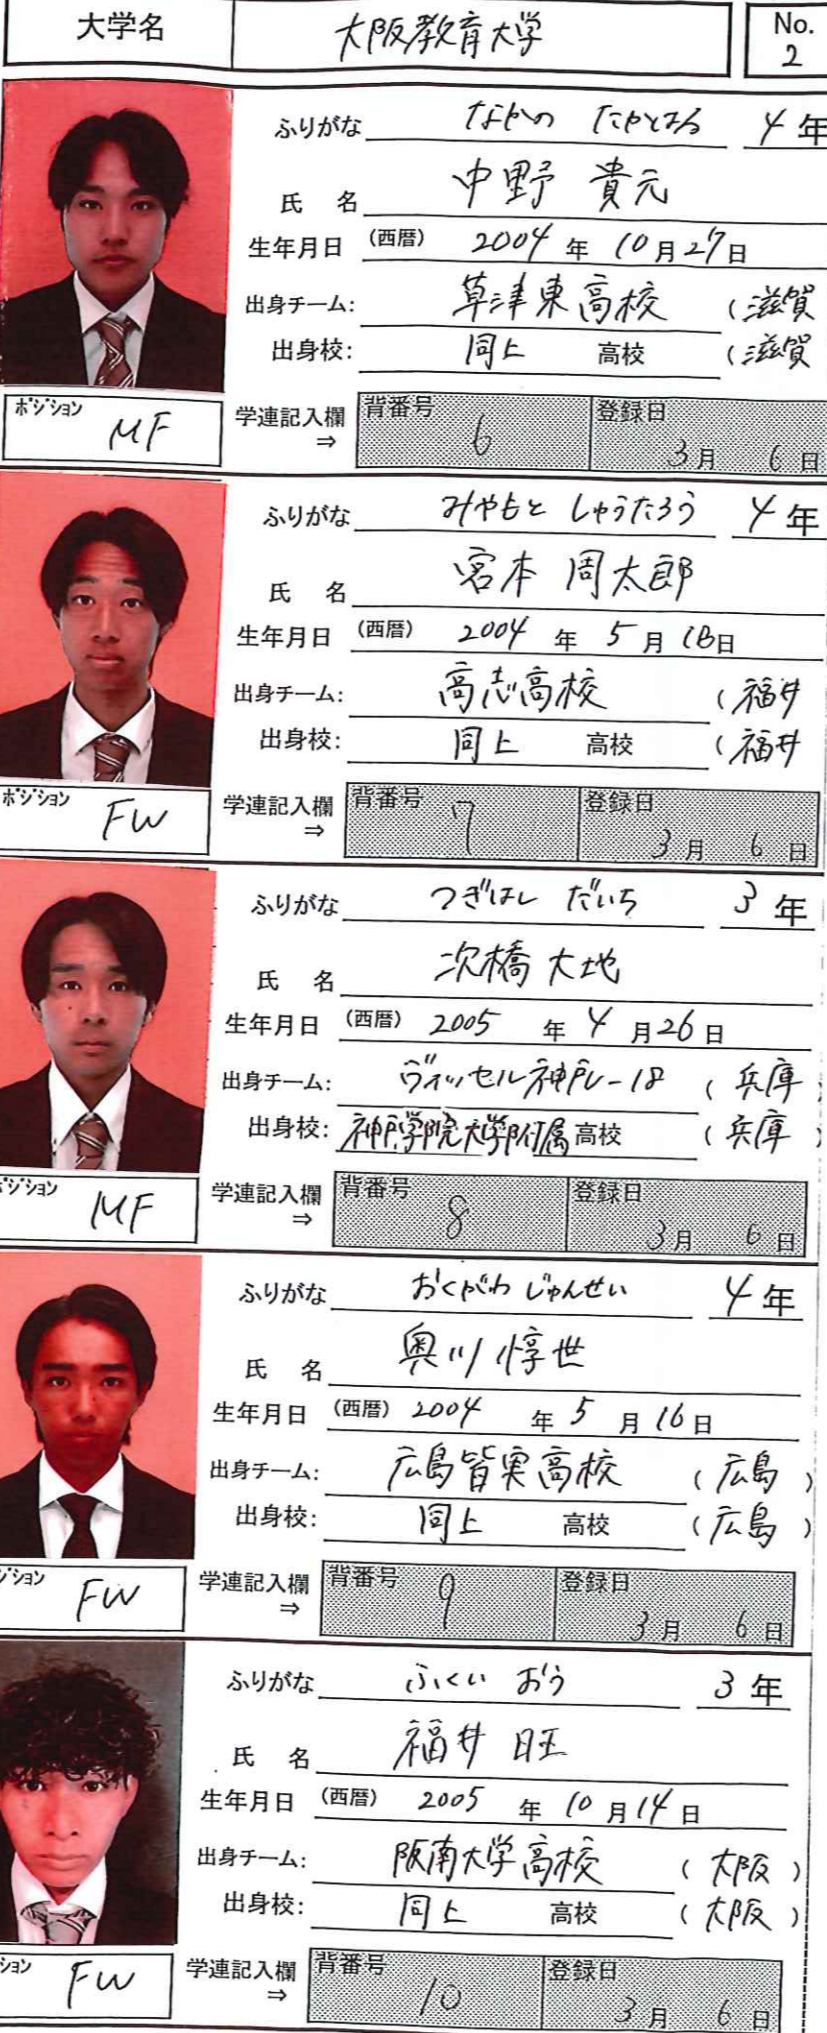 大学名 大阪教育大学 No. 2
ふりがな なかの たかはる 4年
氏 名 中野 貴元
生年月日 (西暦) 2004 年 10 月 27 日
出身チーム: 草津東高校 (滋賀
出身校: 同上 高校 (滋賀
ポジション MF 学連記入欄 ⇒ 背番号 6 登録日 3月 6日
ふりがな みやもと しゅうたろう 4年
氏 名 宮本 周太郎
生年月日 (西暦) 2004 年 5 月 18日
出身チーム: 高志高校 (福井
出身校: 同上 高校 (福井
ポジション FW 学連記入欄 ⇒ 背番号 7 登録日 3月 6日
ふりがな つぎはし だいち 3年
氏 名 次橋 大地
生年月日 (西暦) 2005 年 4 月 26 日
出身チーム: ヴィッセル神戸U-18 (兵庫)
出身校: 神戸学院大学附属 高校 (兵庫)
ポジション MF 学連記入欄 ⇒ 背番号 8 登録日 3月 6日
ふりがな おくがわ じゅんせい 4年
氏 名 奥川 惇世
生年月日 (西暦) 2004 年 5 月 16 日
出身チーム: 広島皆実高校 (広島)
出身校: 同上 高校 (広島)
ジション FW 学連記入欄 ⇒ 背番号 9 登録日 3月 6日
ふりがな ふくい おう 3年
氏 名 福井 旺
生年月日 (西暦) 2005 年 10 月 14 日
出身チーム: 阪南大学高校 (大阪)
出身校: 同上 高校 (大阪)
ション FW 学連記入欄 ⇒ 背番号 10 登録日 3月 6日